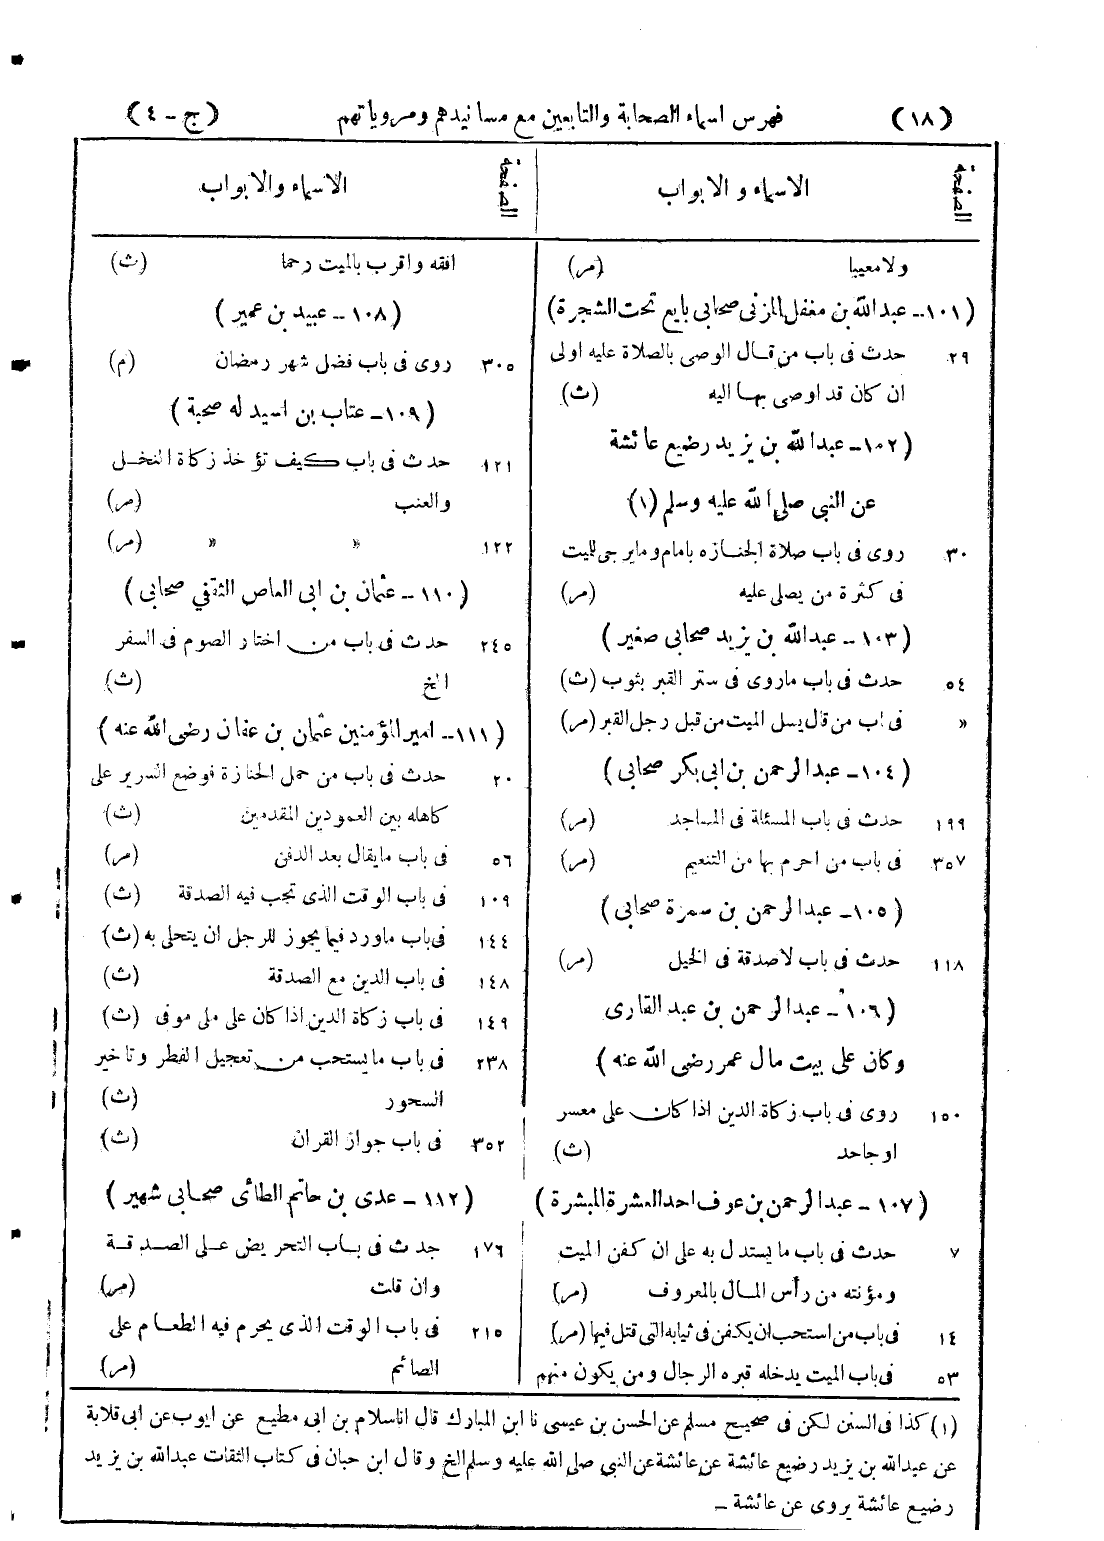 (١٨) فهرس اسماء الصحابة والتابعين مع مسانيدهم ومروياتهم (ج - ٤)
الصفحة الاسماء و الابواب
ولا معيبا (مر)
(١٠١ - عبدالله بن مغفل المزنى صحابى بايع تحت الشجرة)
٢٩ حدث فى باب من قال الوصى بالصلاة عليه اولى
ان كان قد اوصى بها اليه (ث)
(١٠٢ - عبدالله بن يزيد رضيع عائشة
عن النبى صلى الله عليه وسلم (١)
٣٠ روى فى باب صلاة الجنازه بامام وما يرجى للميت
فى كثرة من يصلى عليه (مر)
(١٠٣ - عبدالله بن يزيد صحابى صغير)
٥٤ حدث فى باب ماروى فى ستر القبر بثوب (ث)
» فى اب من قال يسل الميت من قبل رجل القبر (مر)
(١٠٤ - عبدالرحمن بن ابى بكر صحابى)
١٩٩ حدث فى باب المسئلة فى المساجد (مر)
٣٥٧ فى باب من احرم بها من التنعيم (مر)
(١٠٥ - عبدالرحمن بن سمرة صحابى)
١١٨ حدث فى باب لاصدقة فى الخيل (مر)
(١٠٦ - عبدالرحمن بن عبد القارى
وكان على بيت مال عمر رضى الله عنه)
١٥٠ روى فى باب زكاة الدين اذا كان على معسر
او جاحد (ث)
(١٠٧ - عبدالرحمن بن عوف احد العشرة المبشرة)
٧ حدث فى باب ما يستدل به على ان كفن الميت
ومؤنته من رأس المال بالمعروف (مر)
١٤ فى باب من استحب ان يكفن فى ثيابه التى قتل فيها (مر)
٥٣ فى باب الميت يدخله قبره الرجال ومن يكون منهم
الصفحة الاسماء والابواب
افقه واقرب بالميت رحما (ث)
(١٠٨ - عبيد بن عمير)
٣٠٥ روى فى باب فضل شهر رمضان (م)
(١٠٩ - عتاب بن اسيد له صحبة)
١٢١ حدث فى باب كيف تؤخذ زكاة النخل
والعنب (مر)
١٢٢ » » (مر)
(١١٠ - عثمان بن ابى العاص الثقفي صحابى)
٢٤٥ حدث فى باب من اختار الصوم فى السفر
الخ (ث)
(١١١ - امير المؤمنين عثمان بن عفان رضى الله عنه)
٢٠ حدث فى باب من حمل الجنازة فوضع السرير على
كاهله بين العمودين المقدمين (ث)
٥٦ فى باب مايقال بعد الدفن (مر)
١٠٩ فى باب الوقت الذى تجب فيه الصدقة (ث)
١٤٤ فى باب ماورد فيما يجوز للرجل ان يتحلى به (ث)
١٤٨ فى باب الدين مع الصدقة (ث)
١٤٩ فى باب زكاة الدين اذا كان على ملى موفى (ث)
٢٣٨ فى باب ما يستحب من تعجيل الفطر وتاخير
السحور (ث)
٣٥٢ فى باب جواز القران (ث)
(١١٢ - عدى بن حاتم الطائى صحابى شهير)
١٧٦ حدث فى باب التحريض على الصدقة
وان قلت (مر)
٢١٥ فى باب الوقت الذى يحرم فيه الطعام على
الصائم (مر)
(١) كذا فى السنن لكن فى صحيح مسلم عن الحسن بن عيسى نا ابن المبارك قال اناسلام بن ابى مطيع عن ايوب عن ابى قلابة
عن عبدالله بن يزيد رضيع عائشة عن عائشة عن النبي صلى الله عليه وسلم الخ وقال ابن حبان فى كتاب الثقات عبدالله بن يزيد
رضيع عائشة يروى عن عائشة -